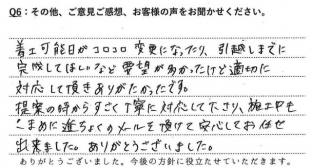 Q6：その他、ご意見ご感想、お客様の声をお聞かせください。
着工可能日がコロコロ変更になったり、引越しまでに
完成してほしいなど要望が多かったけど適切に
対応して頂きありがたかったです。
提案の時からすごく丁寧に対応して下さり、施工中も
こまめに進ちょくのメールを頂けて安心してお任せ
出来ました。ありがとうございました。
ありがとうございました。今後の方針に役立たせていただきます。